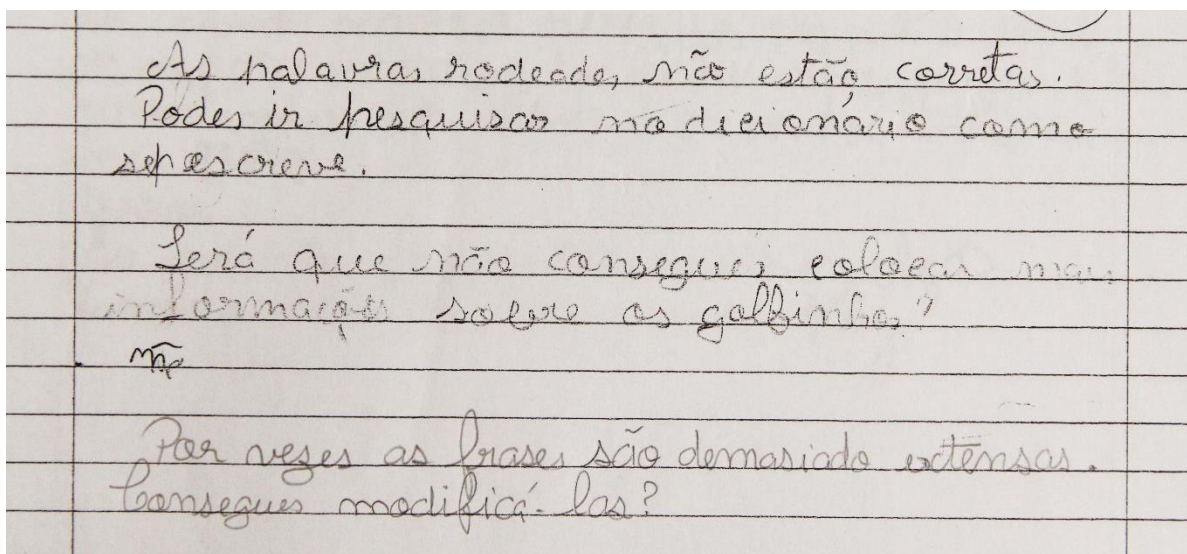 As palavras rodeadas não estão corretas.
Podes ir pesquisar no dicionário como
se escreve.
Será que não consegues colocar mais
informações sobre os golfinhos?
não
Por vezes as frases são demasiado extensas.
Consegues modificá-las?